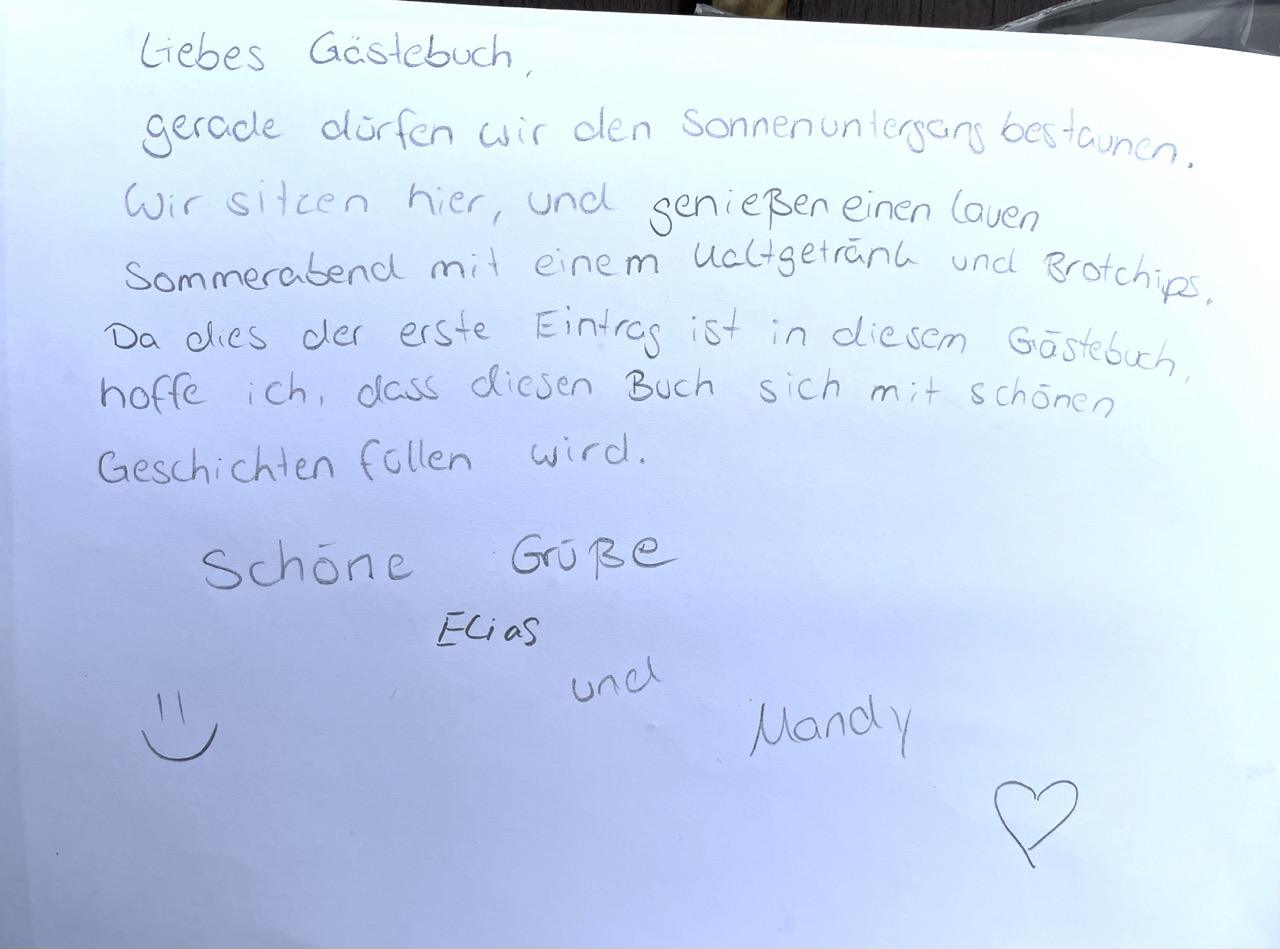 Liebes Gästebuch,
gerade dürfen wir den Sonnenuntergang bestaunen.
Wir sitzen hier, und genießen einen lauen
Sommerabend mit einem Kaltgetränk und Brotchips.
Da dies der erste Eintrag ist in diesem Gästebuch,
hoffe ich, dass diesen Buch sich mit schönen
Geschichten füllen wird.
Schöne Grüße
Elias
und
Mandy